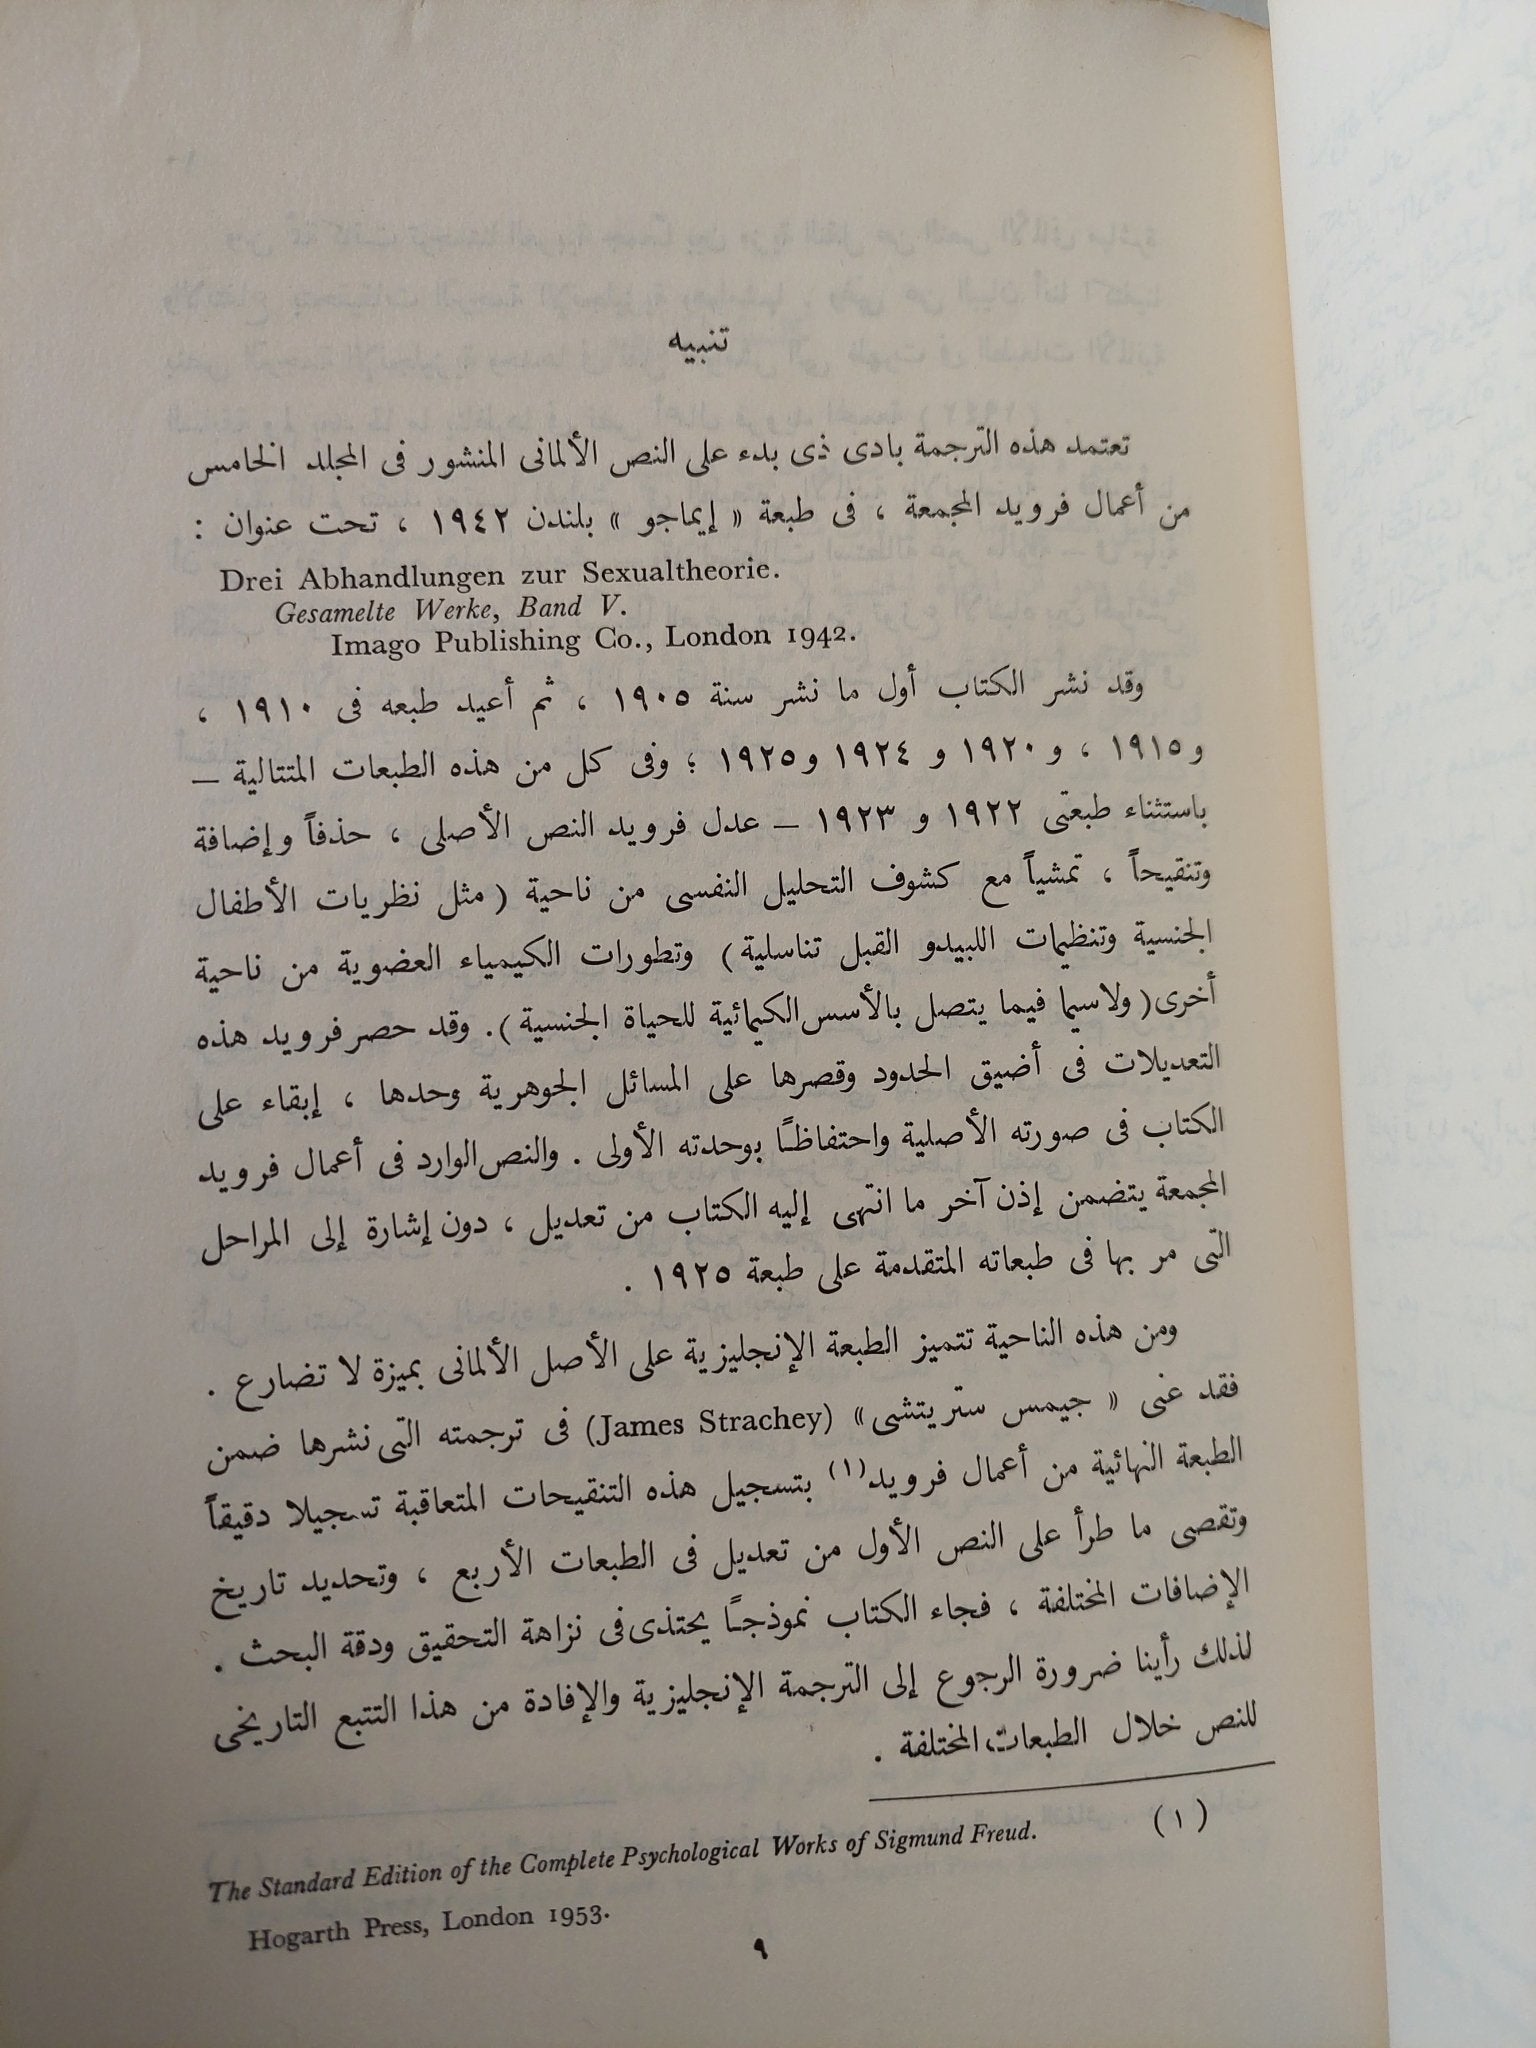 تنبيه
تعتمد هذه الترجمة بادى ذى بدء على النص الألمانى المنشور فى المجلد الخامس
من أعمال فرويد المجمعة ، فى طبعة « إيماجو » بلندن ١٩٤٢ ، تحت عنوان :
Drei Abhandlungen zur Sexualtheorie.
Gesamelte Werke, Band V.
Imago Publishing Co., London 1942.
وقد نشر الكتاب أول ما نشر سنة ١٩٠٥ ، ثم أعيد طبعه فى ١٩١٠ ،
و١٩١٥ ، و١٩٢٠ و ١٩٢٤ و١٩٢٥ ؛ وفى كل من هذه الطبعات المتتالية –
باستثناء طبعتى ١٩٢٢ و ١٩٢٣ – عدل فرويد النص الأصلى ، حذفاً وإضافة
وتنقيحاً ، تمشياً مع كشوف التحليل النفسى من ناحية ( مثل نظريات الأطفال
الجنسية وتنظيمات اللبيدو القبل تناسلية ) وتطورات الكيمياء العضوية من ناحية
أخرى ( ولاسيما فيما يتصل بالأسس الكيمائية للحياة الجنسية ). وقد حصر فرويد هذه
التعديلات فى أضيق الحدود وقصرها على المسائل الجوهرية وحدها ، إبقاء على
الكتاب فى صورته الأصلية واحتفاظاً بوحدته الأولى . والنص الوارد فى أعمال فرويد
المجمعة يتضمن إذن آخر ما انتهى إليه الكتاب من تعديل ، دون إشارة إلى المراحل
التى مر بها فى طبعاته المتقدمة على طبعة ١٩٢٥ .
ومن هذه الناحية تتميز الطبعة الإنجليزية على الأصل الألمانى بميزة لا تضارع .
فقد عنى « جيمس ستريتشى » (James Strachey) فى ترجمته التى نشرها ضمن
الطبعة النهائية من أعمال فرويد(١) بتسجيل هذه التنقيحات المتعاقبة تسجيلا دقيقاً
وتقصى ما طرأ على النص الأول من تعديل فى الطبعات الأربع ، وتحديد تاريخ
الإضافات المختلفة ، فجاء الكتاب نموذجاً يحتذى فى نزاهة التحقيق ودقة البحث .
لذلك رأينا ضرورة الرجوع إلى الترجمة الإنجليزية والإفادة من هذا التتبع التاريخى
للنص خلال الطبعات المختلفة .
(١)
The Standard Edition of the Complete Psychological Works of Sigmund Freud.
Hogarth Press, London 1953.
٩